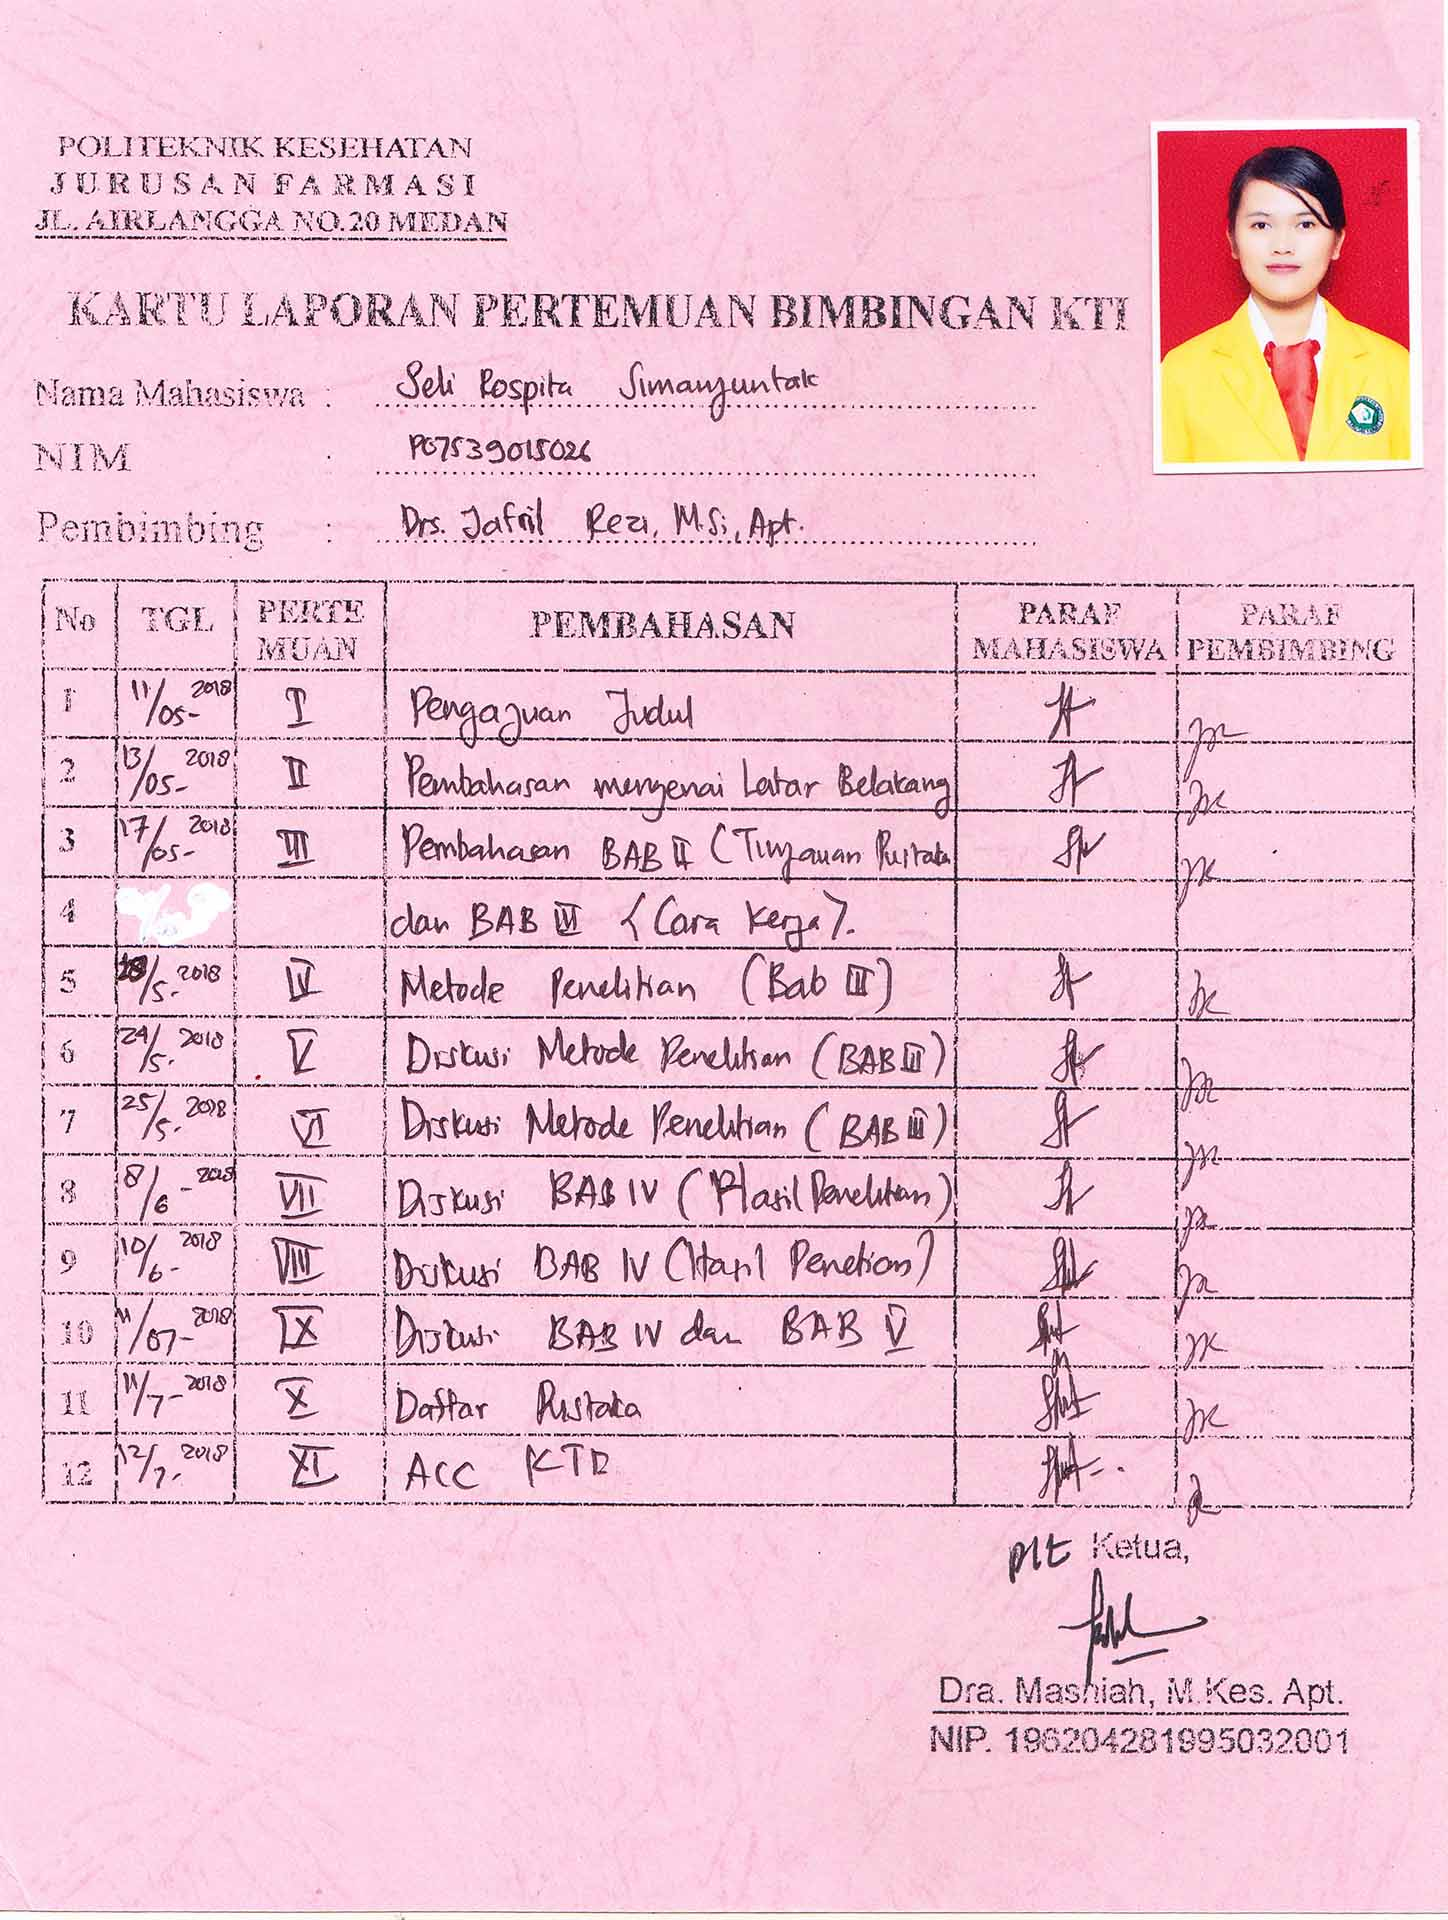 POLITEKNIK KESEHATAN
JURUSAN FARMASI
JL. AIRLANGGA NO.20 MEDAN
KARTU LAPORAN PERTEMUAN BIMBINGAN KTI
Nama Mahasiswa : Seli Rospita Simanjuntak
NIM : P07539015026
Pembimbing : Drs. Jafril Rezi, M.Si, Apt.
No TGL PERTE MUAN PEMBAHASAN PARAF MAHASISWA PARAF PEMBIMBING
1 11/05-2018 I Pengajuan Judul
2 13/05-2018 II Pembahasan mengenai Latar Belakang
3 17/05-2018 III Pembahasan BAB II (Tinjauan Pustaka
4 dan BAB III (Cara Kerja).
5 /5-2018 IV Metode Penelitian (Bab III)
6 24/5-2018 V Diskusi Metode Penelitian (BAB III)
7 25/5-2018 VI Diskusi Metode Penelitian (BAB III)
8 8/6-2018 VII Diskusi BAB IV (Hasil Penelitian)
9 10/6-2018 VIII Diskusi BAB IV (Hasil Penetian)
10 11/07-2018 IX Diskusi BAB IV dan BAB V
11 11/7-2018 X Daftar Pustaka
12 12/7-2018 XI ACC KTI
Plt Ketua,
Dra. Masniah, M.Kes. Apt.
NIP. 196204281995032001